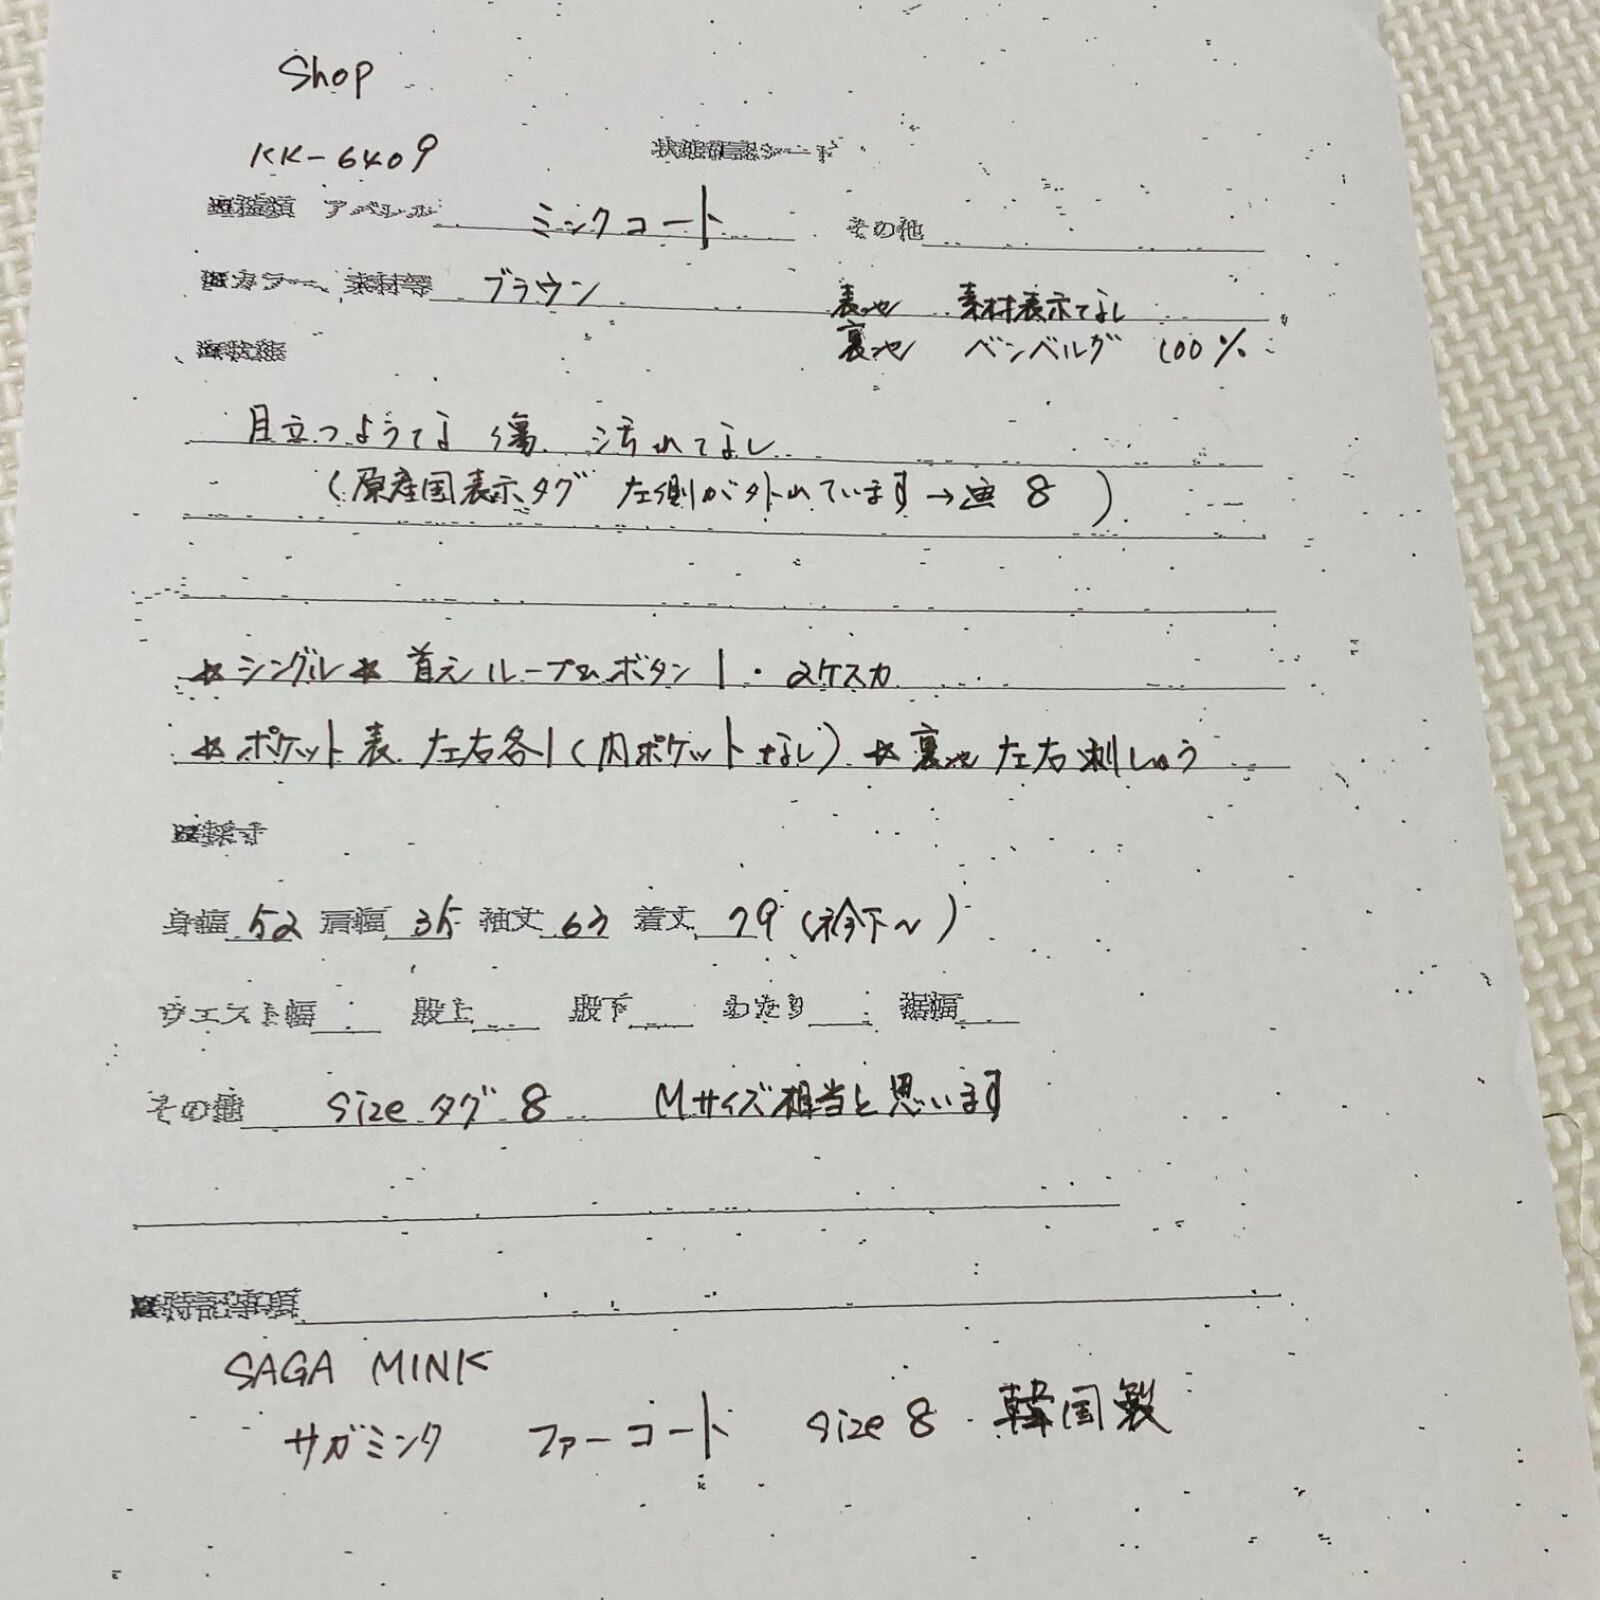 Shop
KK-6409 状態確認シート
■種類 アパレル ミンクコート その他
■カラー、素材等 ブラウン 表地 素材表示なし
■状態 裏地 ベンベルグ 100%
目立つような 傷 汚れなし
(原産国表示タグ 左側が外れています→画 8 )
☆シングル☆ 首元ループムボタン1・2ケスカ
☆ポケット表 左右各1(内ポケットなし) ☆裏地 左右刺しゅう
■採寸
身幅 52 肩幅 35 袖丈 63 着丈 79 (衿下~)
ウエスト幅 股上 股下 わたり 裾幅
その他 sizeタグ8 Mサイズ相当と思います
■特記事項
SAGA MINK
サガミンク ファーコート size 8 韓国製